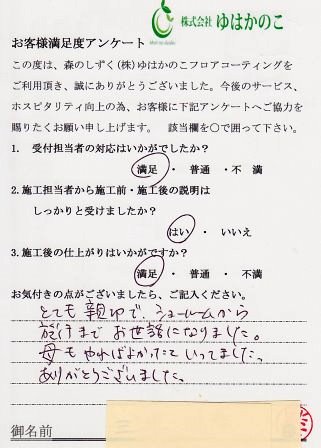 株式会社 ゆはかのこ
お客様満足度アンケート
この度は、森のしずく(株)ゆはかのこフロアコーティングを
ご利用頂き、誠にありがとうございました。今後のサービス、
ホスピタリティ向上の為、お客様に下記アンケートへご協力を
賜りたくお願い申し上げます。 該当欄を〇で囲って下さい。
1. 受付担当者の対応はいかがでしたか?
満足 ・ 普通 ・不 満
2.施工担当者から施工前・施工後の説明は
しっかりと受けましたか?
はい ・ いいえ
3.施工後の仕上がりはいかがですか?
満足 ・ 普通 ・ 不満
お気付きの点がございましたら、ご記入ください。
とても親切で、ショールームから
施行までお世話になりました。
母もやればよかったといってました。
ありがとうございました。
御名前